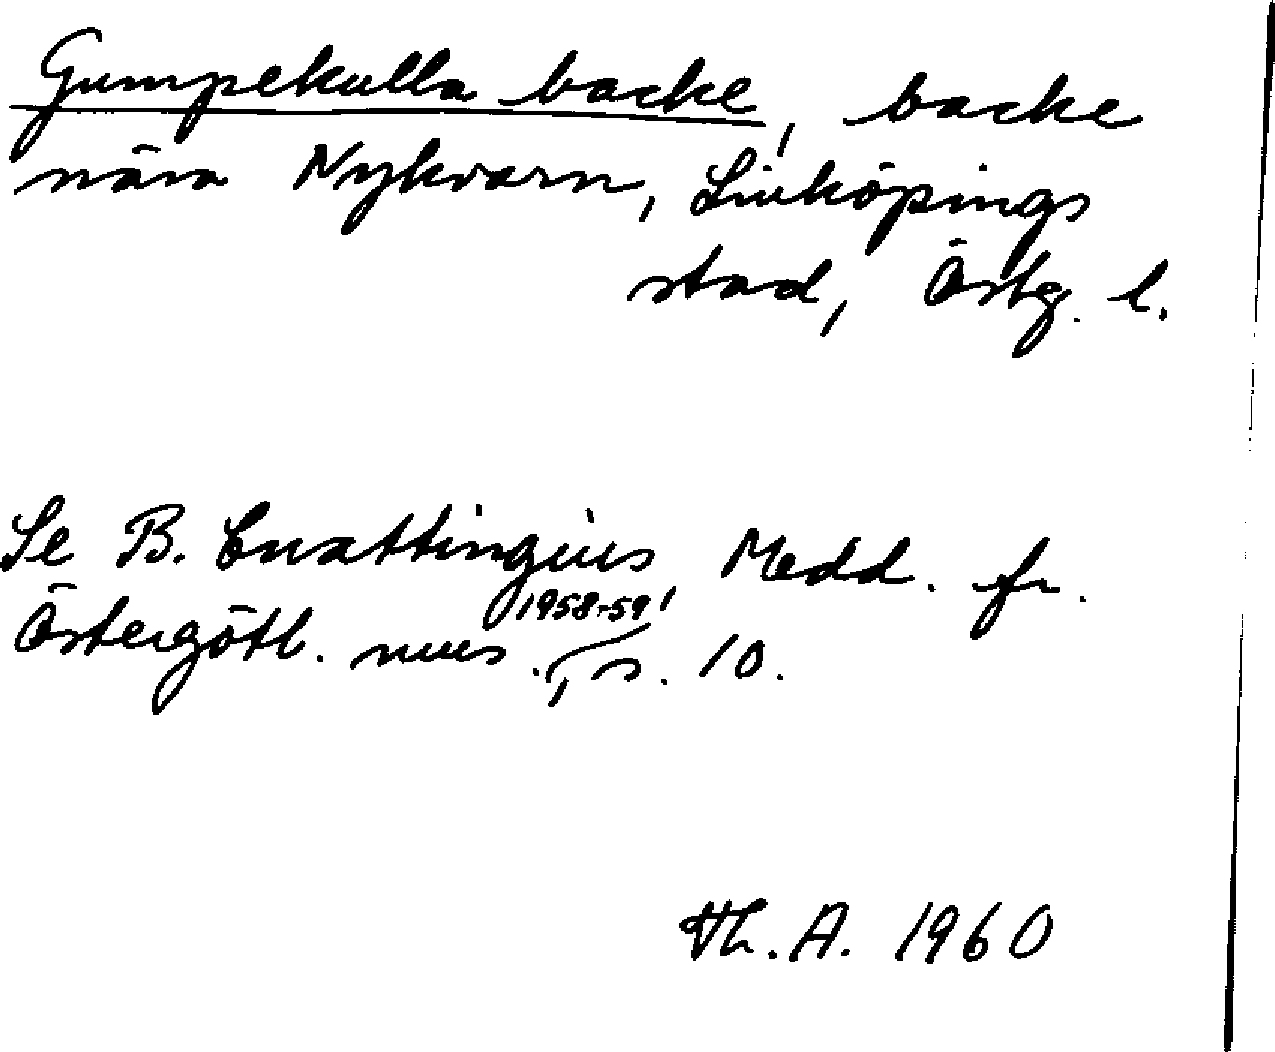 Gumpekulla backe, backe
nära Nykvarn, Linköpings
stad, Östg. l.
Se B. Cnattingius, Medd. fr.
Östergötl. mus., 1958-59, s. 10.
Th. A. 1960